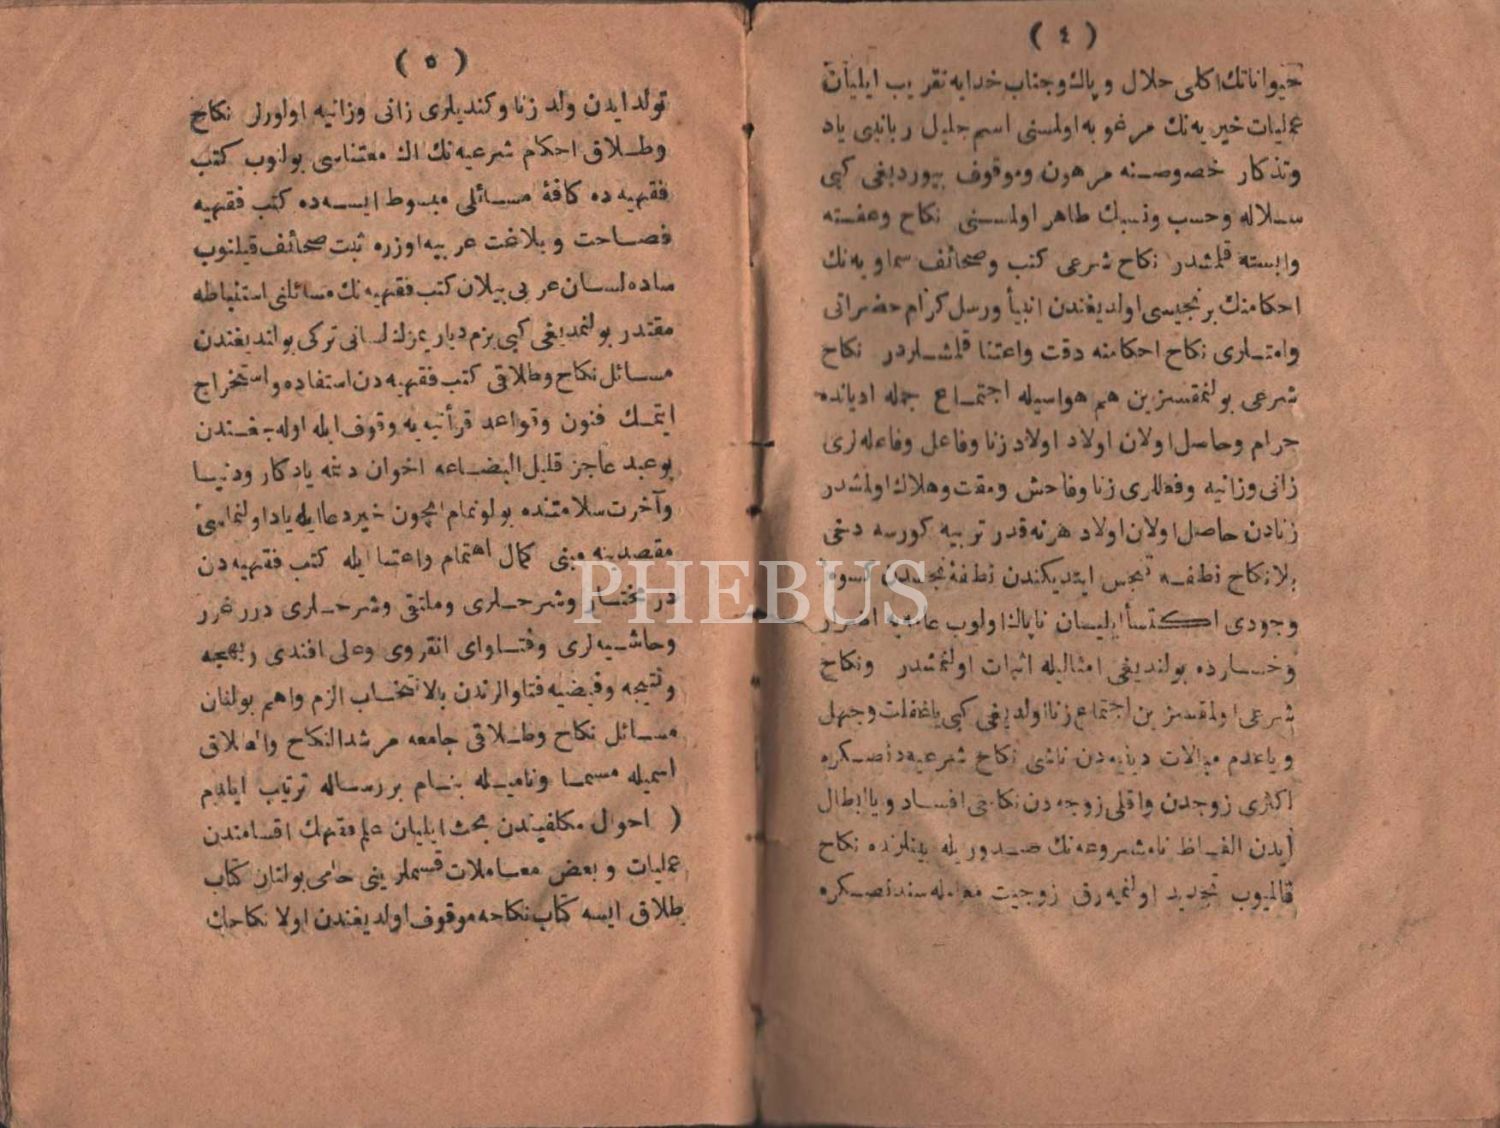 ( ٤ )
حیواناتك اكلی حلال و پاك وجناب خدایه تقریب ایلیان
عملیات خیریه نك مرغوبه اولمسنی اسم جلیل ربانی یاد
وتذكار خصوصنه مرهون وموقوف بیوردیغی كبی
سلاله وحسب ونسبك طاهر اولمسنی نكاح وعفته
وابسته قلمشدر نكاح شرعی كتب وصحائف سماویه نك
احكامنك برنجیسی اولدیغندن انبیأ ورسل كرام حضراتی
وامتلری نكاح احكامنه دقت واعتنا قلمشلردر نكاح
شرعی بولنمقسزین هم هواسیله اجتماع جمله ادیانده
حرام وحاصل اولان اولاد اولاد زنا وفاعل وفاعله لری
زانی وزانیه وفعللری زنا وفاحش ومقت وهلاك اولمشدر
زنادن حاصل اولان اولاد هرنه قدر تربیه كورسه دخی
بلا نكاح نطفه تنجس ایتدیكندن نطفهٔ نجسدن كسوهٔ
وجودی اكتسأ ایلیسان ناپاك اولوب عاقبه اضرار
وخسارده بولندیغی امثالیله اثبات اولنمشدر ونكاح
شرعی اولمقسزین اجتماع زنا اولدیغی كبی یاغفلت وجهل
ویاعدم مبالات دینیه دن ناشی نكاح شرعیه دنصكره
اكثری زوجدن واقلی زوجه دن نكاحی افساد ویاابطال
ایدن الفاظ نامشروعه نك صدوریله بینلرنده نكاح
قالمیوب تجدید اولنمیه رق زوجیت معامله سندنصكره
( ٥ )
تولد ایدن ولد زنا وكندیلری زانی وزانیه اولورلر نكاح
وطلاق احكام شرعیه نك اك معتناسی بولنوب كتب
فقهیه ده كافهٔ مسائلی مبسوط ایسه ده كتب فقهیه
فصاحت وبلاغت عربیه اوزره ثبت صحائف قیلنوب
ساده لسان عربی بیلان كتب فقهیه نك مسائلنی استنباطه
مقتدر بولنمدیغی كبی بزم دیاریمزك لسانی تركی بولندیغندن
مسائل نكاح وطلاقی كتب فقهیه دن استفاده واستخراج
ایتمك فنون وقواعد قرأنیه یه وقوف ایله اوله جغندن
بوعبد عاجز قلیل البضاعه اخوان دینه یادكار ودنیا
وآخرت سلامتنده بولونمام ایچون خیر دعا ایله یاد اولنمامی
مقصدینه مبنی كمال اهتمام واعتنا ایله كتب فقهیه دن
در مختار وشرحلری وملتقی وشرحلری درر غرر
وحاشیه لری وفتاوای انقروی وعلی افندی وبهجه
ونتیجه وفیضیه فتاوالرندن بالانتخاب الزم واهم بولنان
مسائل نكاح وطلاقی جامعه مرشد النكاح والطلاق
اسمیله مسما ونامیله بنام بررساله ترتیب ایلدم
( احوال مكلفیندن بحث ایلیان علم فقهك اقسامندن
عملیات وبعض معاملات قسملرینی حاوی بولنان كتاب
طلاق ایسه كتاب نكاحه موقوف اولدیغندن اولا نكاحك
PHEBUS